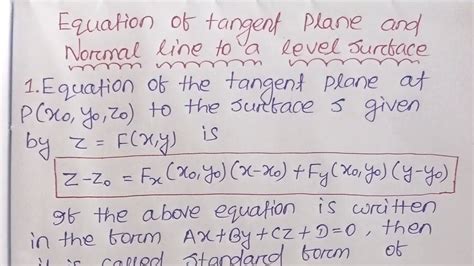 Equation of tangent plane and
Normal line to a level surface
1. Equation of the tangent plane at
P(x₀, y₀, z₀) to the surface s given
by z = F(x,y) is
z-z₀ = Fx(x₀,y₀)(x-x₀) + Fy(x₀,y₀)(y-y₀)
If the above equation is written
in the form Ax+By+Cz+D=0, then
it is called standard form of